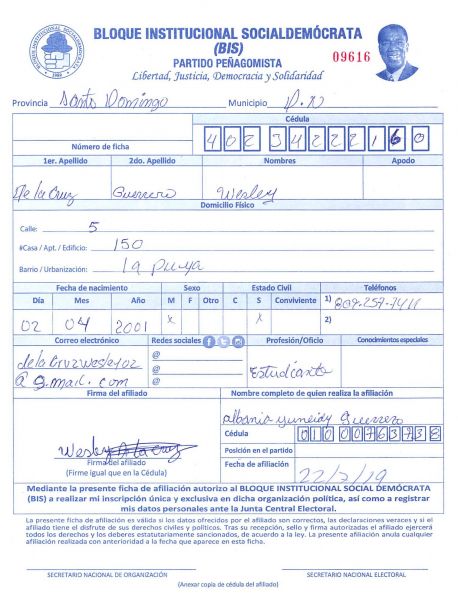 BLOQUE INSTITUCIONAL SOCIALDEMÓCRATA
(BIS)
PARTIDO PEÑAGOMISTA
Libertad, Justicia, Democracia y Solidaridad
09616
BLOQUE INSTITUCIONAL SOCIALDEMOCRATA
Provincia Santo Domingo Municipio D.N
Cédula
Número de ficha 402 3422216 0
1er. Apellido 2do. Apellido Nombres Apodo
De la Cruz Guerrero Wesley
Domicilio Físico
Calle: 5
#Casa / Apt. / Edificio: 150
Barrio / Urbanización: la puya
Fecha de nacimiento Sexo Estado Civil Teléfonos
Día Mes Año M F Otro C S Conviviente 1) 809-257-7411
02 04 2001 x x 2)
Correo electrónico Redes sociales Profesión/Oficio Conocimientos especiales
delaCruzwesley02
@ g.mail.com
@
@
@
Estudiante
Firma del afiliado Nombre completo de quien realiza la afiliación
Albania yuneidy Guerrero
Cédula
Wesley De la Cruz
Posición en el partido
Firma del afiliado
(Firme igual que en la Cédula)
Fecha de afiliación 22/7/19
Mediante la presente ficha de afiliación autorizo al BLOQUE INSTITUCIONAL SOCIAL DEMÓCRATA
(BIS) a realizar mi inscripción única y exclusiva en dicha organización política, así como a registrar
mis datos personales ante la Junta Central Electoral.
La presente ficha de afiliación es válida si los datos ofrecidos por el afiliado son correctos, las declaraciones veraces y si el
afiliado tiene el disfrute de sus derechos civiles y políticos. Tras su recepción, sello y firma autorizados el afiliado ejercerá
todos los derechos y los deberes estatutariamente sancionados, de acuerdo a la ley. La presente afiliación anula cualquier
afiliación realizada con anterioridad a la fecha que aparece en esta ficha.
SECRETARIO NACIONAL DE ORGANIZACIÓN SECRETARIO NACIONAL ELECTORAL
(Anexar copia de cédula del afiliado)